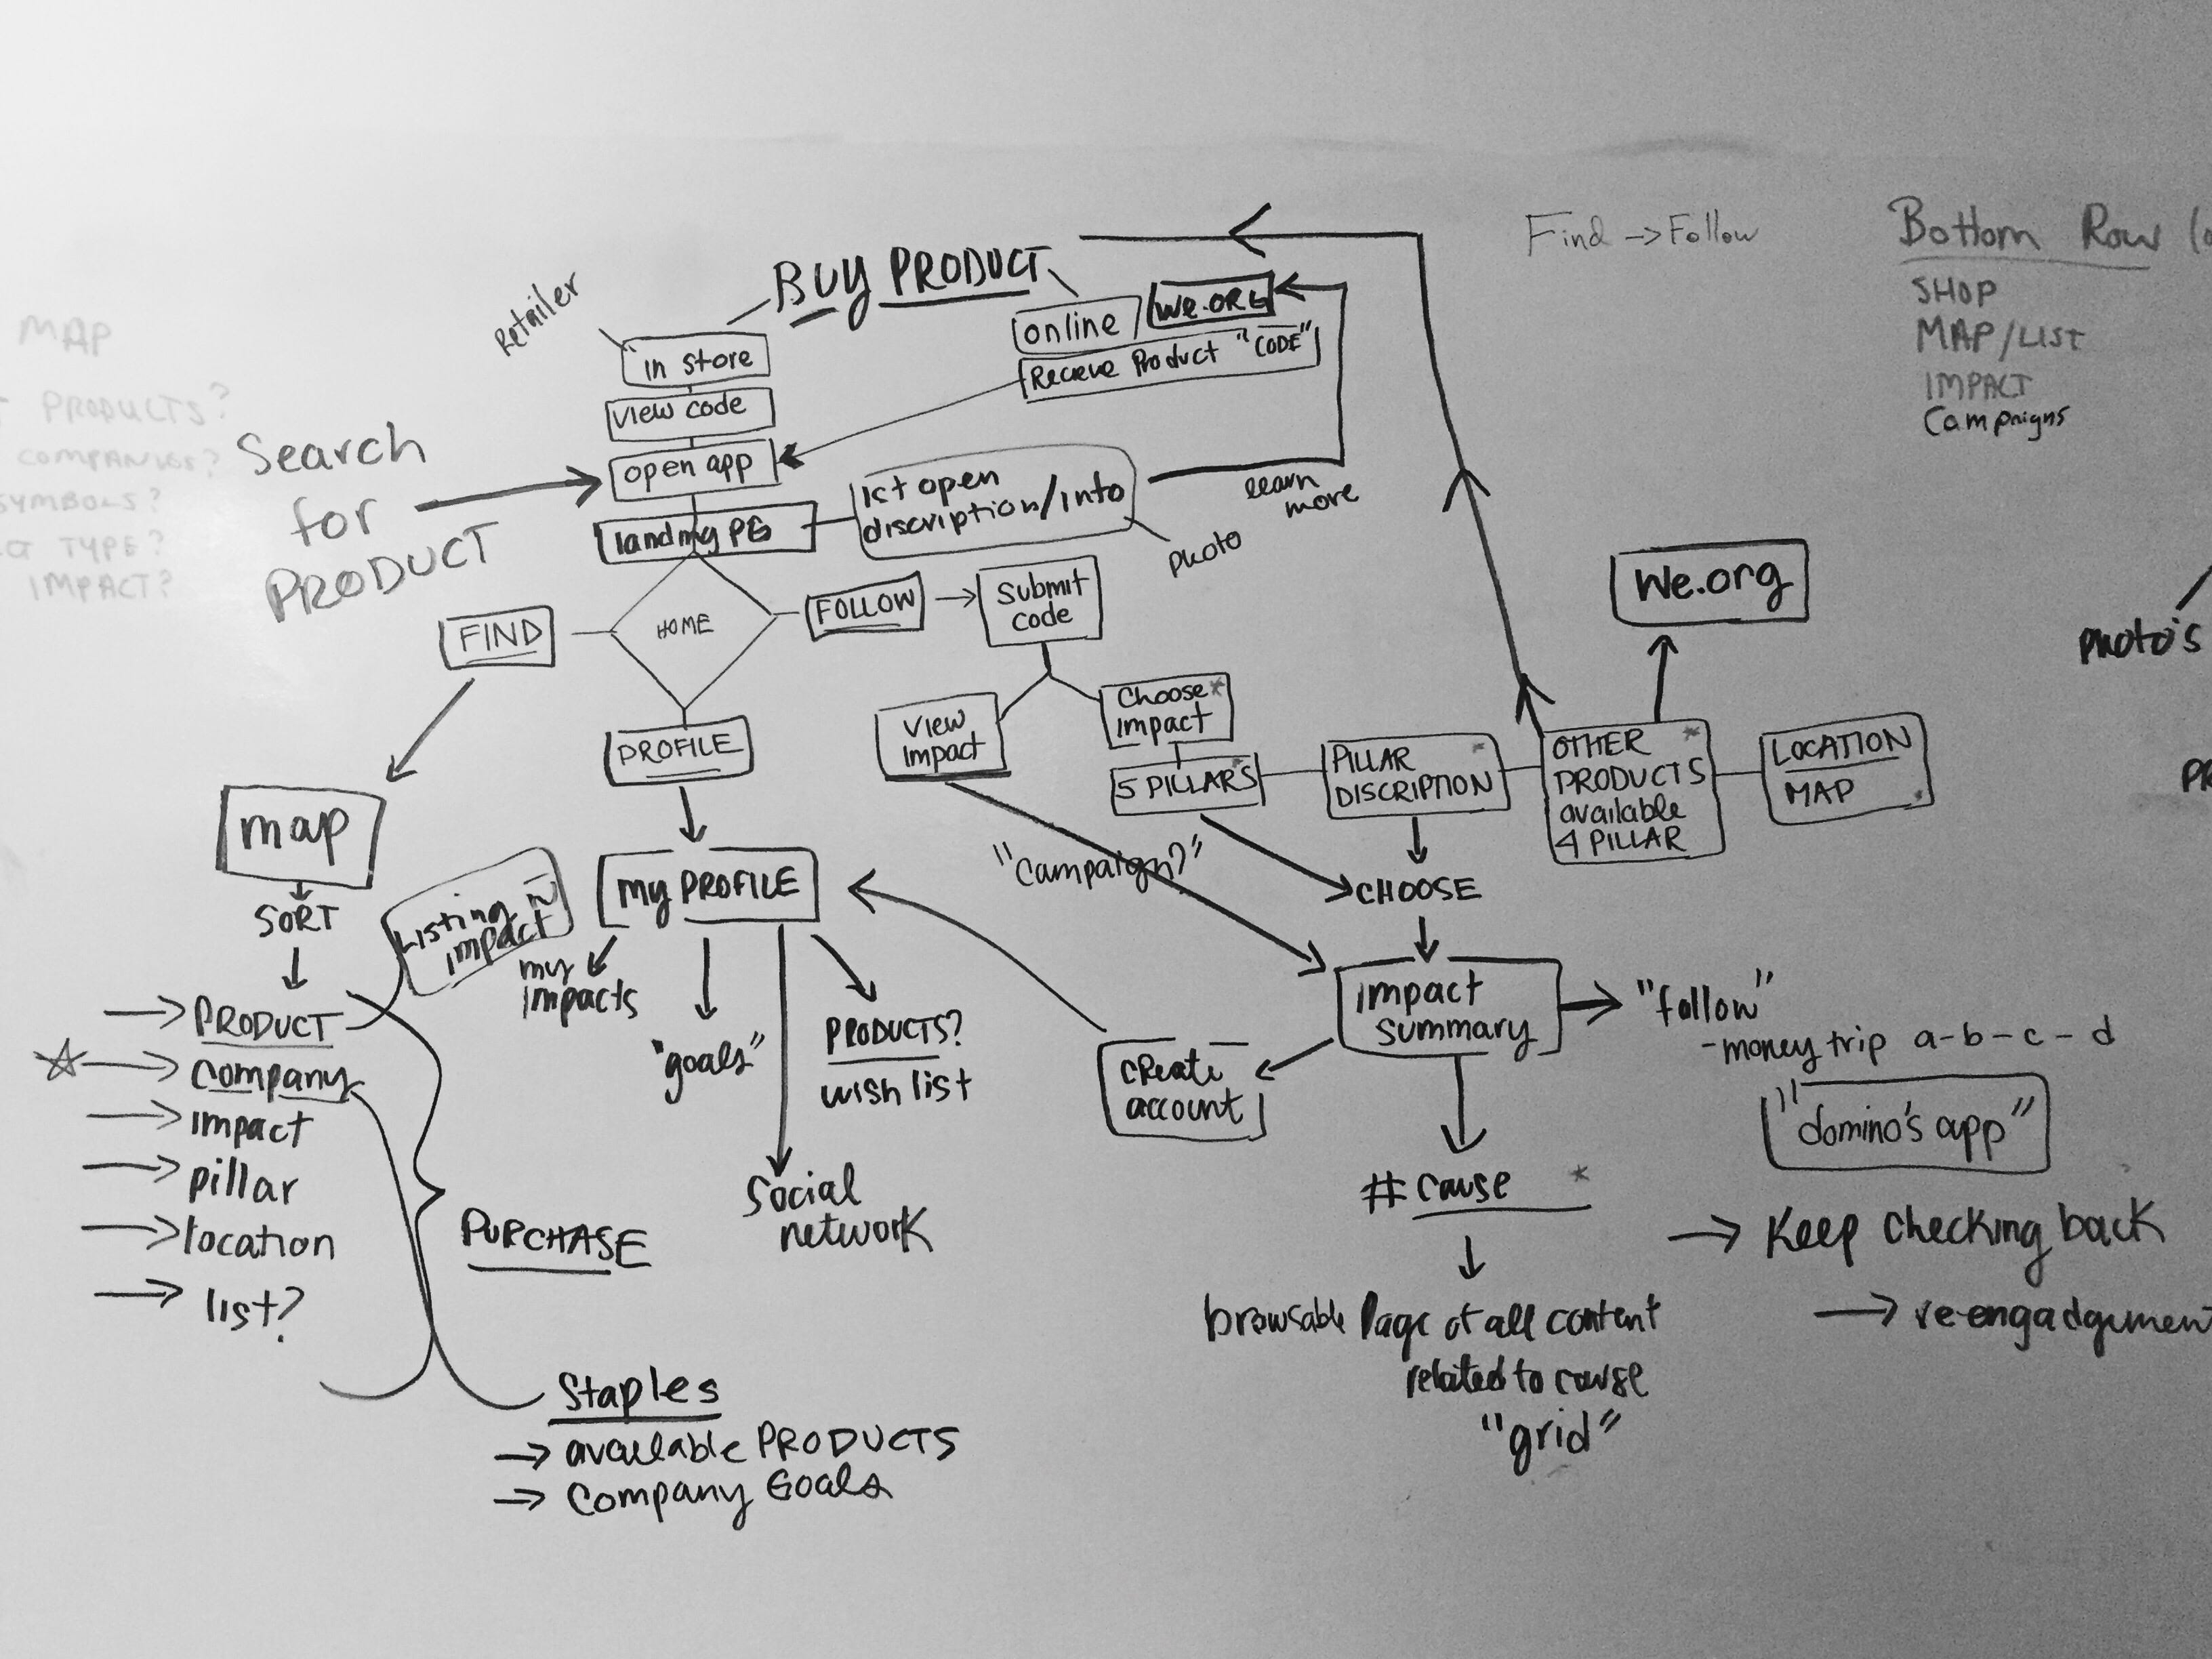 MAP
PRODUCTS?
COMPANIES?
SYMBOLS?
TYPE?
IMPACT?
Search
for
PRODUCT
Retailer
BUY PRODUCT
in store
view code
open app
landing PG
online / We.ORG
Recieve Product "CODE"
1st open
discription/into
learn
more
photo
Find → Follow
Bottom Row
SHOP
MAP/LIST
IMPACT
Campaigns
FIND
HOME
FOLLOW
Submit
code
PROFILE
View
impact
Choose *
impact
5 PILLARS *
PILLAR *
DISCRIPTION
OTHER *
PRODUCTS
available
4 PILLAR
LOCATION
MAP *
We.org
photo's
map
SORT
PRODUCT
company
impact
pillar
location
list?
Listing
impact
PURCHASE
Staples
→ available PRODUCTS
→ Company Goals
my PROFILE
my
impacts
"goals"
Social
network
PRODUCTS?
wish list
"Campaign?"
CHOOSE
impact
summary
create
account
"follow"
- money trip a-b-c-d
"domino's app"
# cause *
browsable Page of all content
related to cause
"grid"
→ Keep checking back
→ re-engadgement